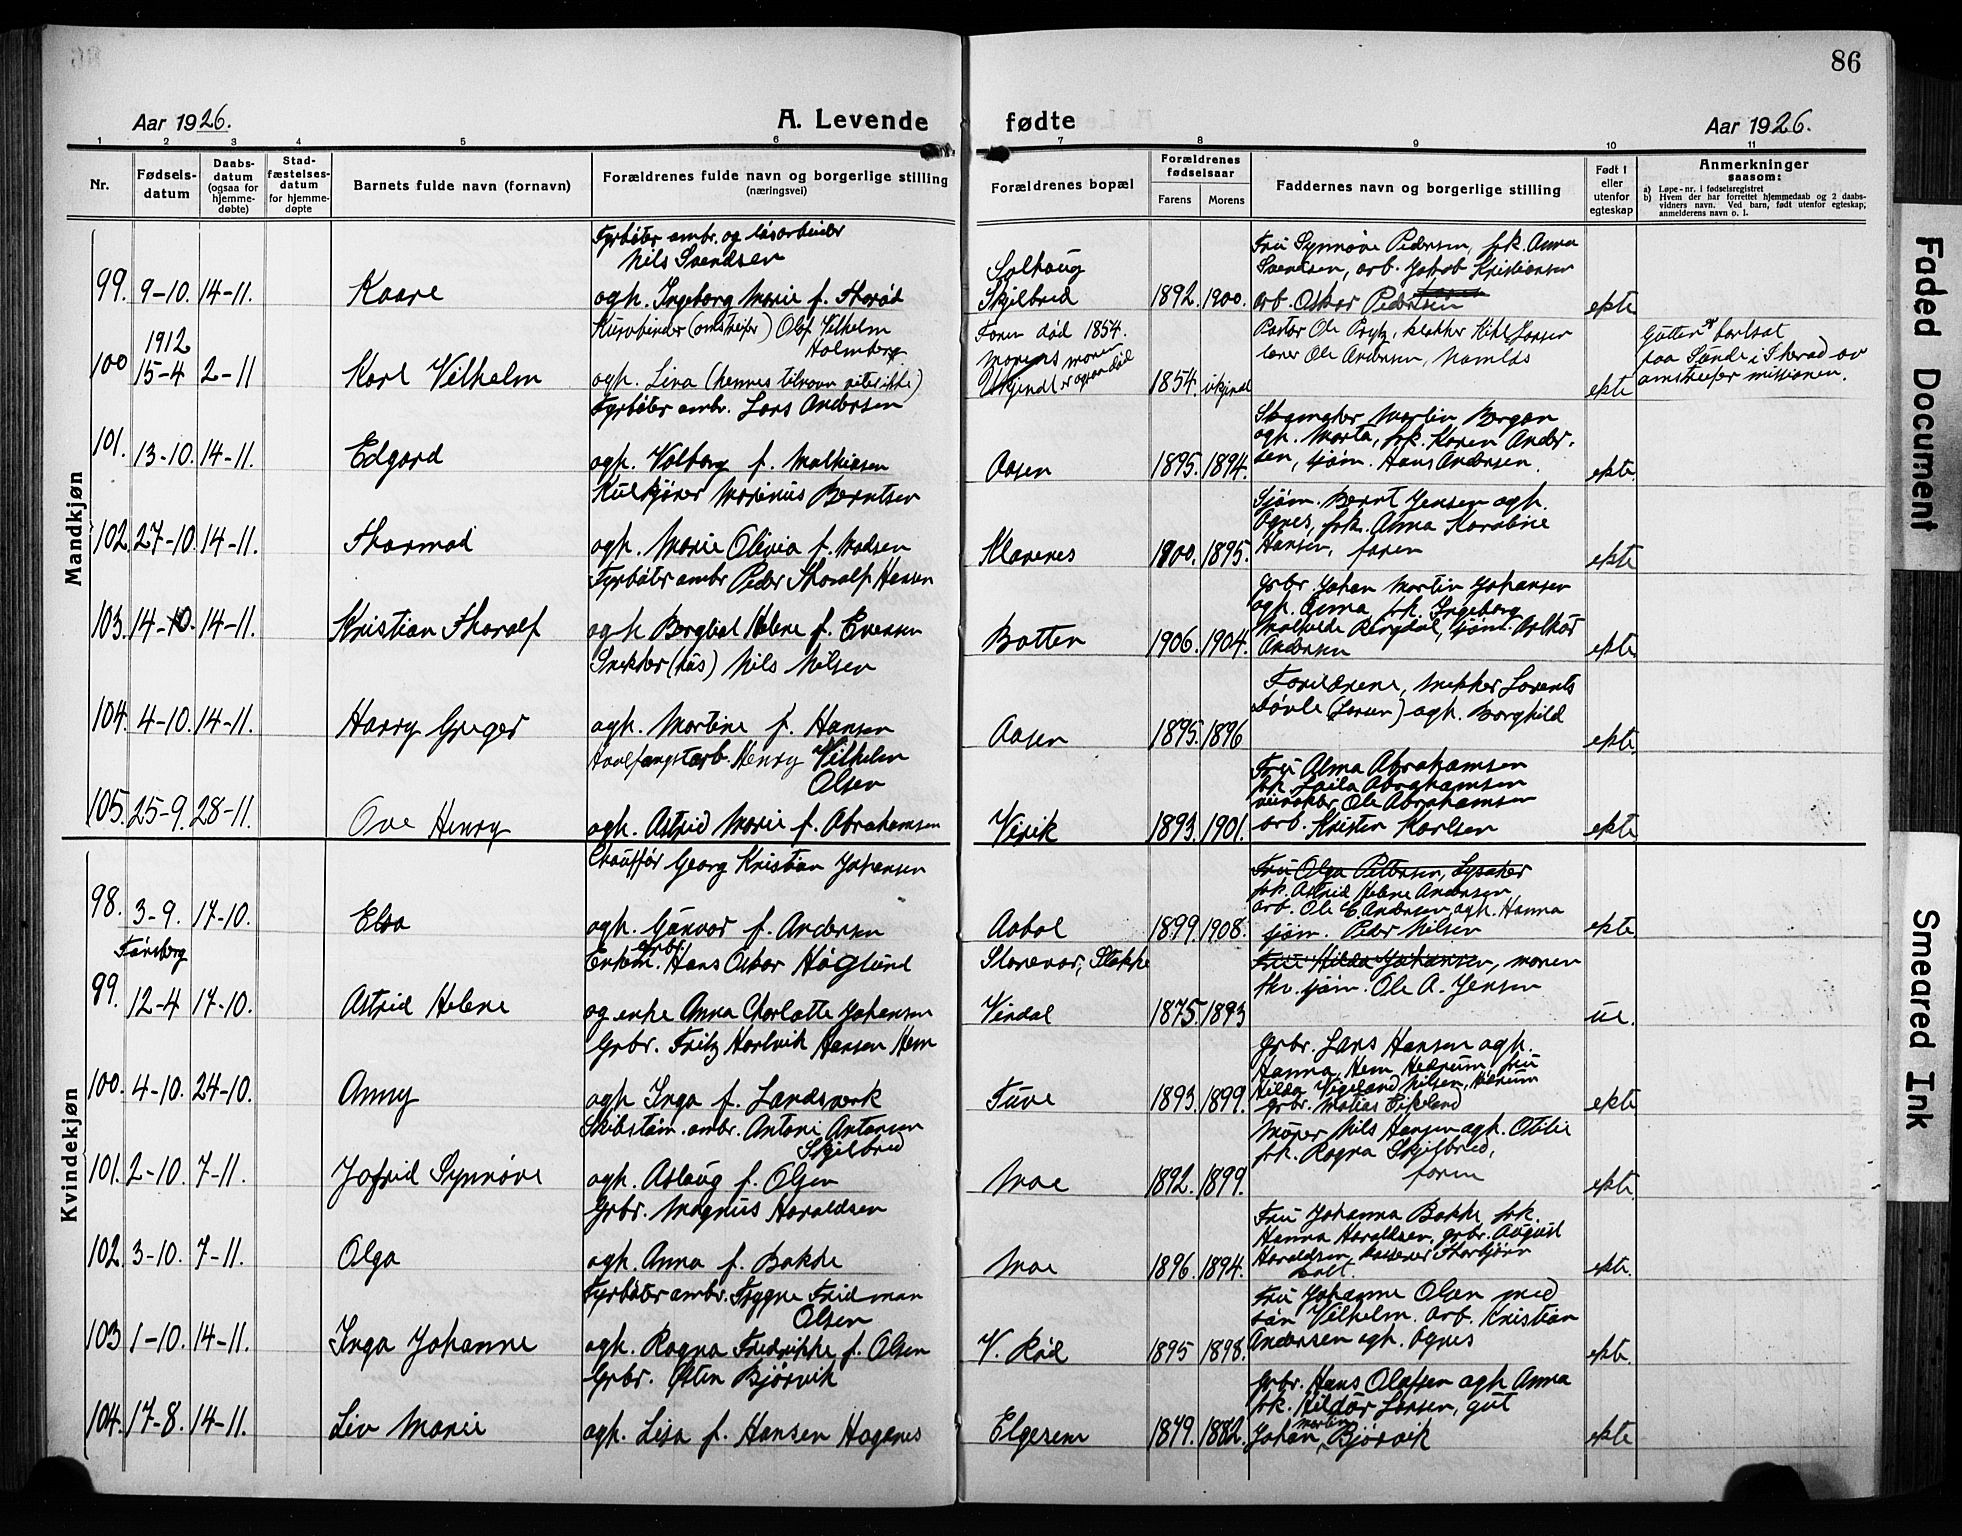 86
Aar 1926.
A. Levende
fødte
Aar 1926.
1 2 3 4 5 6 7 8 9 10 11
Nr.
Fødsels-
datum
Daabs-
datum
(ogsaa for
hjemme-
døbte)
Stad-
fæstelses-
datum
for hjemme-
døpte
Barnets fulde navn (fornavn)
Forældrenes fulde navn og borgerlige stilling
(næringsvei)
Forældrenes bopæl
Forældrenes
fødselsaar
Farens Morens
Faddernes navn og borgerlige stilling
Født i
eller
utenfor
egteskap
Anmerkninger
saasom:
a) Løpe-nr. i fødselsregistret
b) Hvem der har forrettet hjemmedaab og 2 daabs-
vidners navn. Ved barn, født utenfor egteskap,
anmelderens navn o. l.
Mandkjøn
Fyrbøter ambr. og løsarbeider
Nils Svendsen
99. 9-10. 14-11. Kaare
agh. Ingeborg Marie f.
Solhaug
Skjelbred
1892. 1900.
Fru Synnøve Pedersen, frk. Anna
Svendsen, arb. Jakob Kristiansen
arb. Oskar Pedersen
ekte
Kurvbinder (omstreifer) Olof Vilhelm
Holmberg
1912
100 15-4 2-11 Karl Vilhelm
agh. Lina (hennes tilnavn vites ikke)
Faren død 1854.
morens
Ukjendt
1854. ukjendt
Pastor Ole Prytz, klokker Larsen
lærer Ole Andersen,
ekte
Gutten er bortsat
paa Sunde i Therad av
omstreifer missionen.
Fyrbøter ambr. Lars Andersen
101. 13-10. 14-11. Edgard
agh. Valborg f. Mathiasen
Aasen
1895. 1894.
Martin Bergan
agh. Marta, frk. Karen Ander-
sen, sjøm. Hans Andersen.
ekte
Kulkjører Marinus Berntsen
102. 27-10. 14-11. Thormod
agh. Marie Olivia f. Madsen
Klavenes
1900. 1895.
Sjøm. Bernt Jensen agh.
Agnes, frk. Anna Karoline
Hansen, faren
ekte
Fyrbøter ambr Peder Thoralf Hansen
103. 14-10. 14-11. Kristian Thoralf
agh Borghild Helene f. Evensen
Botten
1906. 1904.
Grbr. Johan Martin Johansen
agh. Anna, frk. Ingeborg
Mathilde Bergdal, sjøm.
Andersen
ekte
Snekker (hus) Nils Nilsen
104. 4-10. 14-11. Harry Greger
agh. Martine f. Hansen
Aasen
1895. 1896
Forældrene, snekker Lorents
Døvle (Larsen) agh. Borghild
ekte
Hvalfangstarb. Henry Vilhelm
Olsen
105. 25-9. 28-11. Ove Henry
agh. Astrid Marie f. Abrahamsen
Virik
1893. 1901.
Fru Alma Abrahamsen
frk Laila Abrahamsen
Ole Abrahamsen
arb. Kristen Karlsen
ekte
Kvindekjøn
Chauffør Georg Kristian Johansen
98. 3-9. 17-10. Elsa
agh. Gunvor f. Andersen
Aabol
1899. 1908.
Fru Olga Pettersen, Lysaker
frk. Astrid Helene Andersen
arb. Ole E. Andersen agh. Hanna
sjøm. Peder Nilsen
ekte
Tønsberg
Enkem. grbr. Hans Oskar Høglund
99. 12-4 17-10. Astrid Helene
og enke Anna Charlotte Johansen
Storevar, Stokke
Vindal
1875 1893
Fru Hilda Johansen, moren
skv. sjøm. Ole A. Jensen
ue.
Grbr. Fritz Hartvik Hansen Hem
100. 4-10. 24-10. Anny
agh Inga f. Landsverk
Tuve
1893. 1899.
Grbr. Lars Hansen agh.
Hanna Hem Hedrum, fru
Hilda Vigeland Nilsen, Hedrum
grbr. Matias Eikeland
ekte
Skibstøm. ambr. Antoni Antonsen
Skjelbred
101. 2-10. 7-11. Jofrid Synnøve
agh. Aslaug f. Olsen
Moe
1892. 1899.
Murer Nils Hansen agh. Otilie
frk. Ragna Skjelbred,
faren
ekte
Grbr. Magnus Haraldsen
102. 3-10. 7-11. Olga
agh. Anna f. Bakke
Moe
1896. 1894.
Fru Johanna Bakke, frk.
Hanna Haraldsen, grbr. August
Haraldsen, Thorbjørn
Holt.
ekte.
Fyrbøter ambr. Trygve Fridman
Olsen
103 1-10. 14-11. Inga Johanne
agh. Ragna Fredrikke f. Olsen
V. Rød
1895 1898.
Fru Johanne Olsen med
søn Vilhelm. arb. Kristian
Andersen agh. Agnes
ekte.
Grbr. Østen Bjørvik
104. 17-8. 14-11. Liv Marie
agh. Lisa f. Hansen Hagenes
Elgesem
1879. 1882.
Grbr. Hans Olafsen agh Anna
frk. Hildur Larsen, gut
Johan Martin Bjørvik
ekte
Faded Document
Smeared Ink